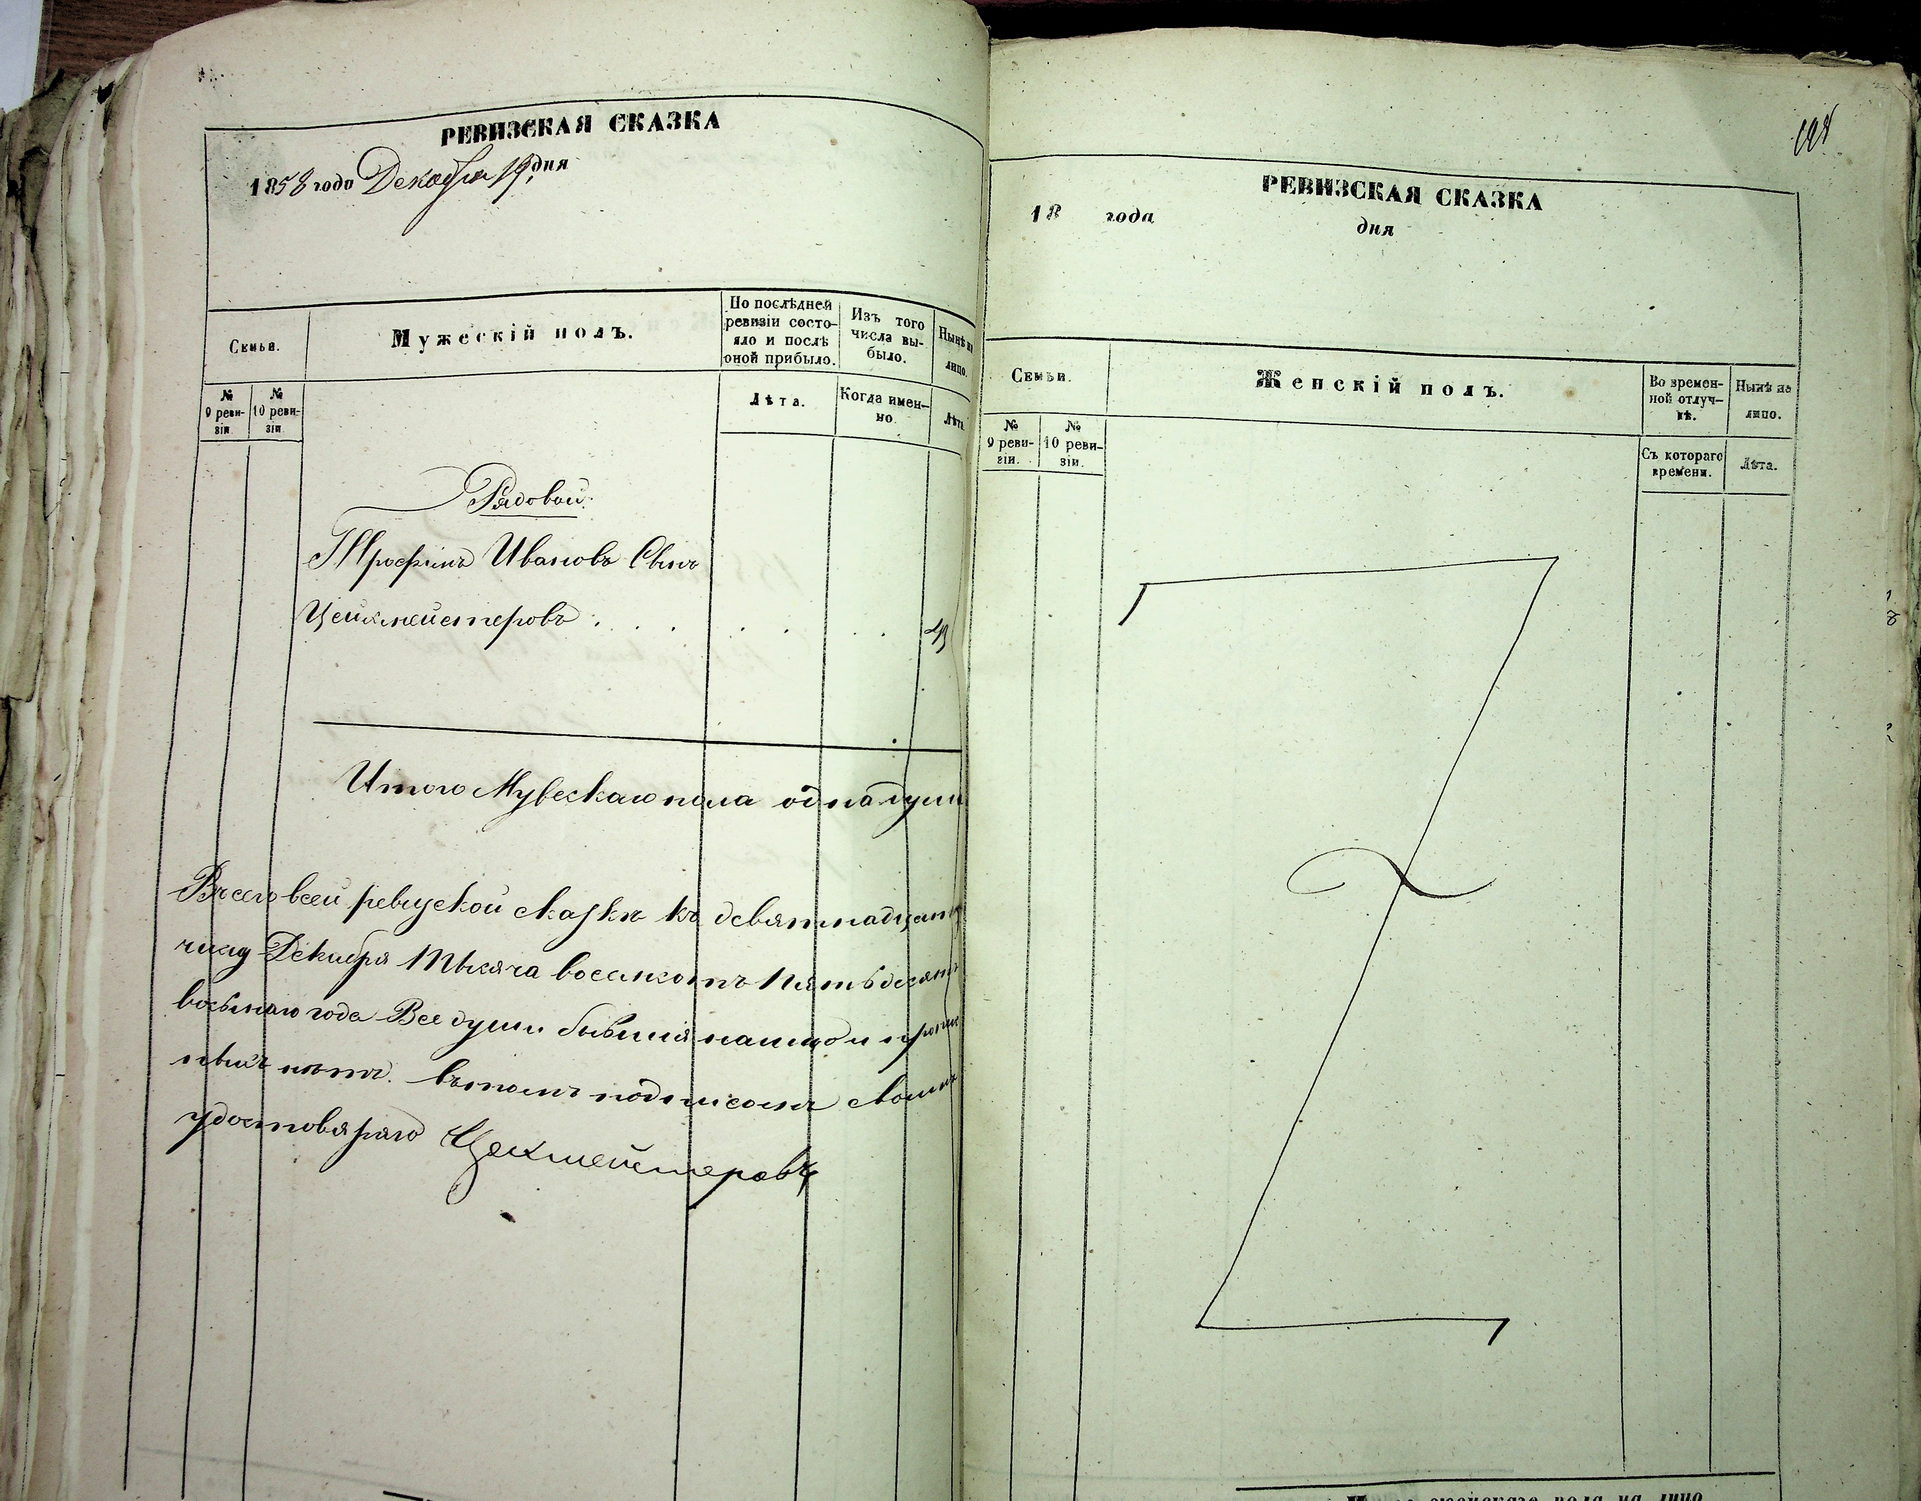 РЕВИЗСКАЯ СКАЗКА
1858 года Декабря 19 дня
Семьи.
Мужескій полъ.
По послѣдней ревизіи состояло и послѣ оной прибыло.
Изъ того числа выбыло.
Нынѣ на лицо.
№ 9 ревизіи.
№ 10 ревизіи
Лѣта.
Когда именно.
Лѣта
Рядовой:
Трофимъ Ивановъ Сынъ
Цейхмейстеровъ . . . . . .
Итого Мужескаго пола одна душа
Въ сего всей ревизской сказкѣ къ девятнадцатому
числу Декабря Тысяча восемсотъ Пятьдесятъ
восьмаго года Все души бывшія на лицо и
нѣтъ. въ томъ подписомъ своимъ
удостовѣряю Цехмейстеровъ
РЕВИЗСКАЯ СКАЗКА
18 года дня
Семьи.
Женскій полъ.
Во временной отлучкѣ.
Нынѣ на лицо.
№ 9 ревизіи.
№ 10 ревизіи.
Съ котораго времени.
Лѣта.
женскаго пола на лицо